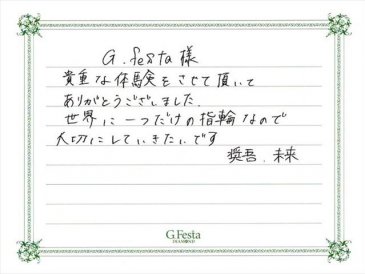 G.festa様
貴重な体験をさせて頂いて
ありがとうございました.
世界に一つだけの指輪なので
大切にしていきたいです
奨吾.未来
G.Festa
DIAMOND